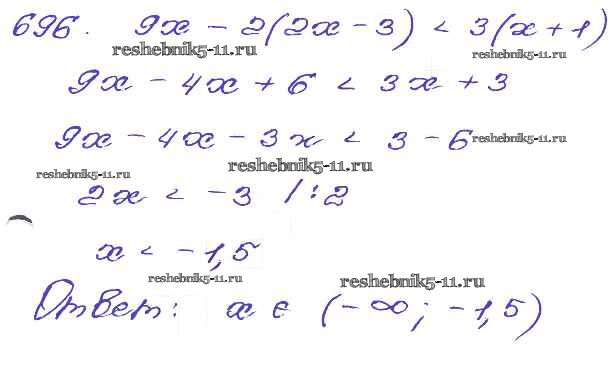 696. 9x - 2(2x - 3) < 3(x + 1)
reshebnik5-11.ru reshebnik5-11.ru
9x - 4x + 6 < 3x + 3
9x - 4x - 3x < 3 - 6 reshebnik5-11.ru
reshebnik5-11.ru reshebnik5-11.ru
2x < -3 /:2
x < -1,5
reshebnik5-11.ru reshebnik5-11.ru
Ответ: x ∈ (-∞; -1,5)